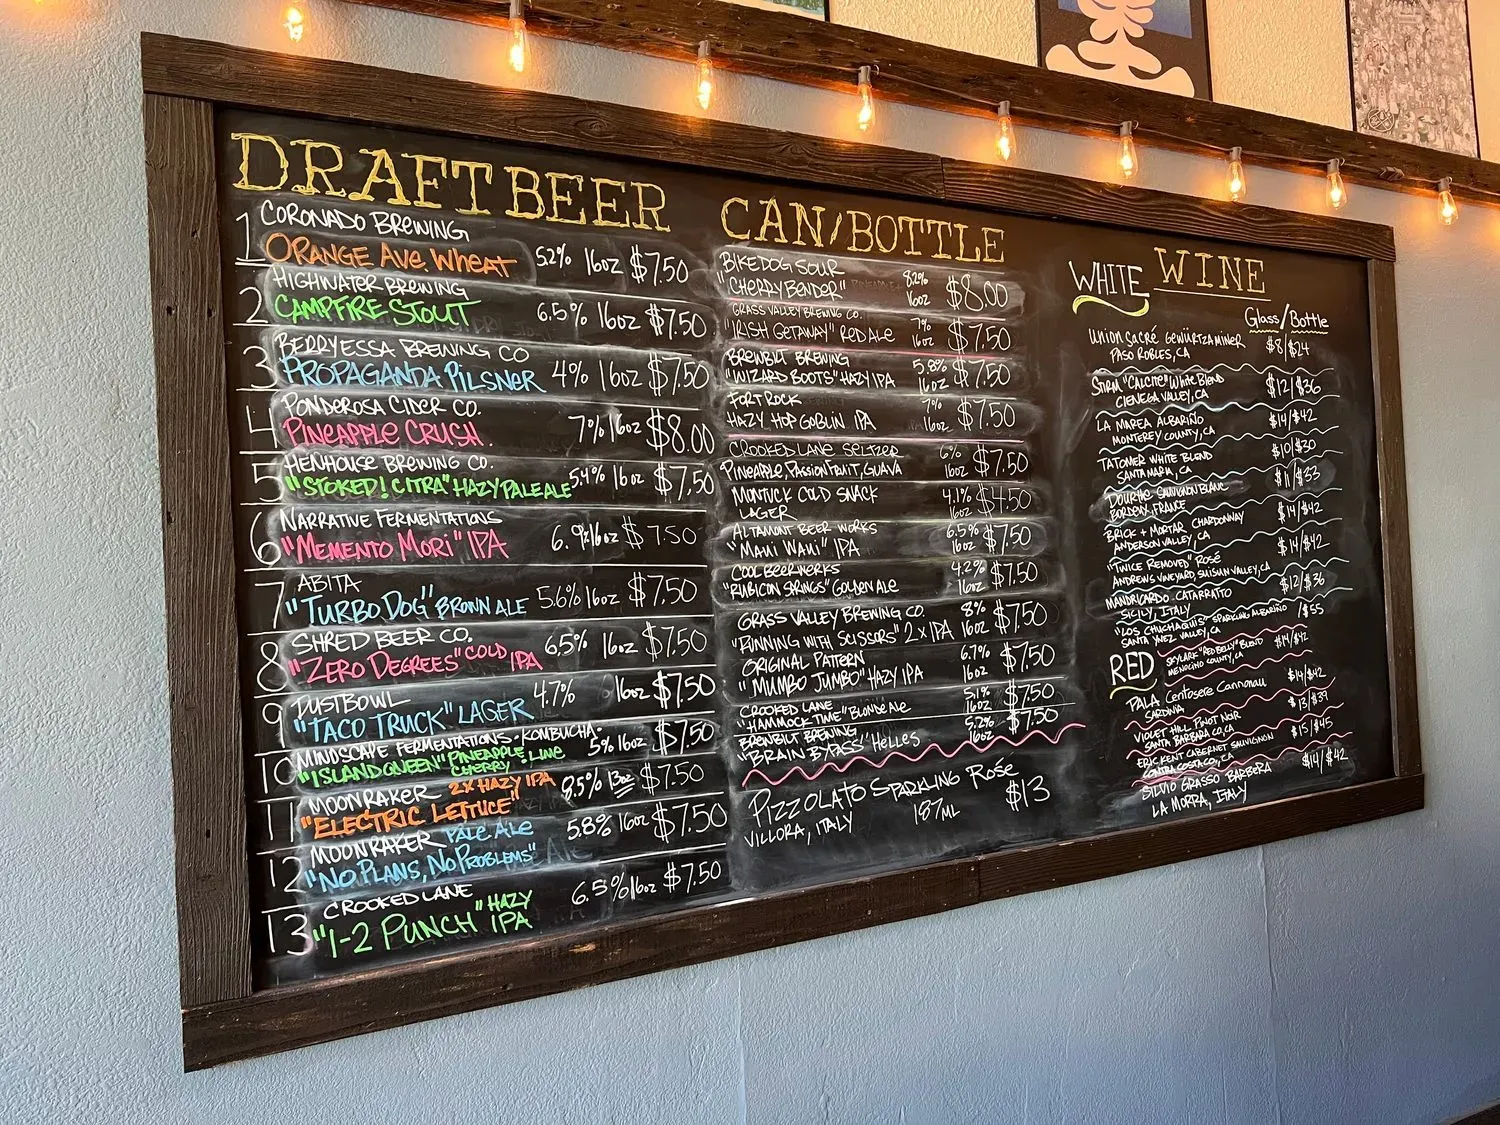 DRAFT BEER
1 CORONADO BREWING
ORANGE AVE. WHEAT 5.2% 16oz $7.50
2 HIGHWATER BREWING
CAMPFIRE STOUT 6.5% 16oz $7.50
3 BERRYESSA BREWING CO
PROPAGANDA PILSNER 4% 16oz $7.50
4 PONDEROSA CIDER CO.
PINEAPPLE CRUSH 7% 16oz $8.00
5 HENHOUSE BREWING CO.
"STOKED! CITRA" HAZY PALE ALE 5.4% 16oz $7.50
6 NARRATIVE FERMENTATIONS
"MEMENTO MORI" IPA 6.9% 16oz $7.50
7 ABITA
"TURBO DOG" BROWN ALE 5.6% 16oz $7.50
8 SHRED BEER CO.
"ZERO DEGREES" COLD IPA 6.5% 16oz $7.50
9 DUSTBOWL
"TACO TRUCK" LAGER 4.7% 16oz $7.50
10 MINDSCAPE FERMENTATIONS - KOMBUCHA-
"ISLAND QUEEN" PINEAPPLE, LIME CHERRY 5% 16oz $7.50
11 MOONRAKER 2X HAZY IPA
"ELECTRIC LETTUCE" 8.5% 13oz $7.50
12 MOONRAKER PALE ALE
"NO PLANS, NO PROBLEMS" 5.8% 16oz $7.50
13 CROOKED LANE
"1-2 PUNCH" "HAZY IPA 6.5% 16oz $7.50
CAN/BOTTLE
BIKEDOG SOUR
"CHERRY BENDER" 8.2% 16oz $8.00
GRASS VALLEY BREWING CO.
"IRISH GETAWAY" RED ALE 7% 16oz $7.50
BREWBILT BREWING
"WIZARD BOOTS" HAZY IPA 5.8% 16oz $7.50
FORT ROCK
HAZY HOP GOBLIN IPA 7% 16oz $7.50
CROOKED LANE SELTZER
PINEAPPLE, PASSIONFRUIT, GUAVA 6% 16oz $7.50
MONTUCK COLD SNACK
LAGER 4.1% 16oz $4.50
ALTAMONT BEER WORKS
"MAUI WAUI" IPA 6.5% 16oz $7.50
COOL BEERWERKS
"RUBICON SPRINGS" GOLDEN ALE 4.2% 16oz $7.50
GRASS VALLEY BREWING CO.
"RUNNING WITH SCISSORS" 2X IPA 8% 16oz $7.50
ORIGINAL PATTERN
"MUMBO JUMBO" HAZY IPA 6.7% 16oz $7.50
CROOKED LANE
"HAMMOCK TIME" BLONDE ALE 5.1% 16oz $7.50
BREWBILT BREWING
"BRAIN BYPASS" HELLES 5.2% 16oz $7.50
PIZZOLATO SPARKLING ROSÉ
VILLORA, ITALY 187ML $13
WINE
WHITE
Glass/Bottle
UNION SACRÉ GEWÜRTZAMINER
PASO ROBLES, CA $8/$24
STIRM "CALCITE" WHITE BLEND
CIENEGA VALLEY, CA $12/$36
LA MAREA ALBARIÑO
MONTEREY COUNTY, CA $14/$42
TATOMER WHITE BLEND
SANTA MARIA, CA $10/$30
SAUVIGNON BLANC
BORDEUX, FRANCE $11/$33
BRICK + MORTAR CHARDONNAY
ANDERSON VALLEY, CA $14/$42
"TWICE REMOVED" ROSÉ
ANDREWS VINEYARD, SUISUN VALLEY, CA $14/$42
MANDRICARDO CATARRATTO
SICILY, ITALY $12/$36
"LOS CHUCHAQUIS" SPARKLING ALBARIÑO
SANTA YNEZ VALLEY, CA /$55
RED
SKYLARK "RED BELLY" BLEND
MENOCINO COUNTY, CA $14/$42
PALA
SARDINIA $14/$42
VIOLET HILL PINOT NOIR
SANTA BARBARA CO, CA $13/$39
ERIC KENT CABERNET SAUVIGNON
CONTRA COSTA CO, CA $15/$45
SILVIO GRASSO BARBERA
LA MORRA, ITALY $14/$42